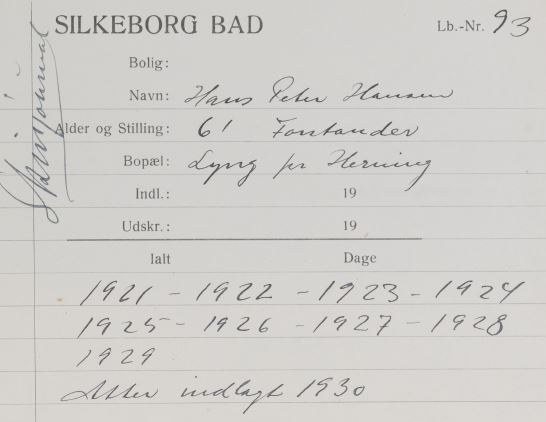 SILKEBORG BAD
Lb.-Nr. 93
Bolig:
Navn: Hans Peter Hansen
Alder og Stilling: 61 Forstander
Bopæl: Lyng pr Herning
Indl.: 19
Udskr.: 19
Ialt Dage
1921 - 1922 - 1923 - 1924
1925 - 1926 - 1927 - 1928
1929
Atter indlagt 1930